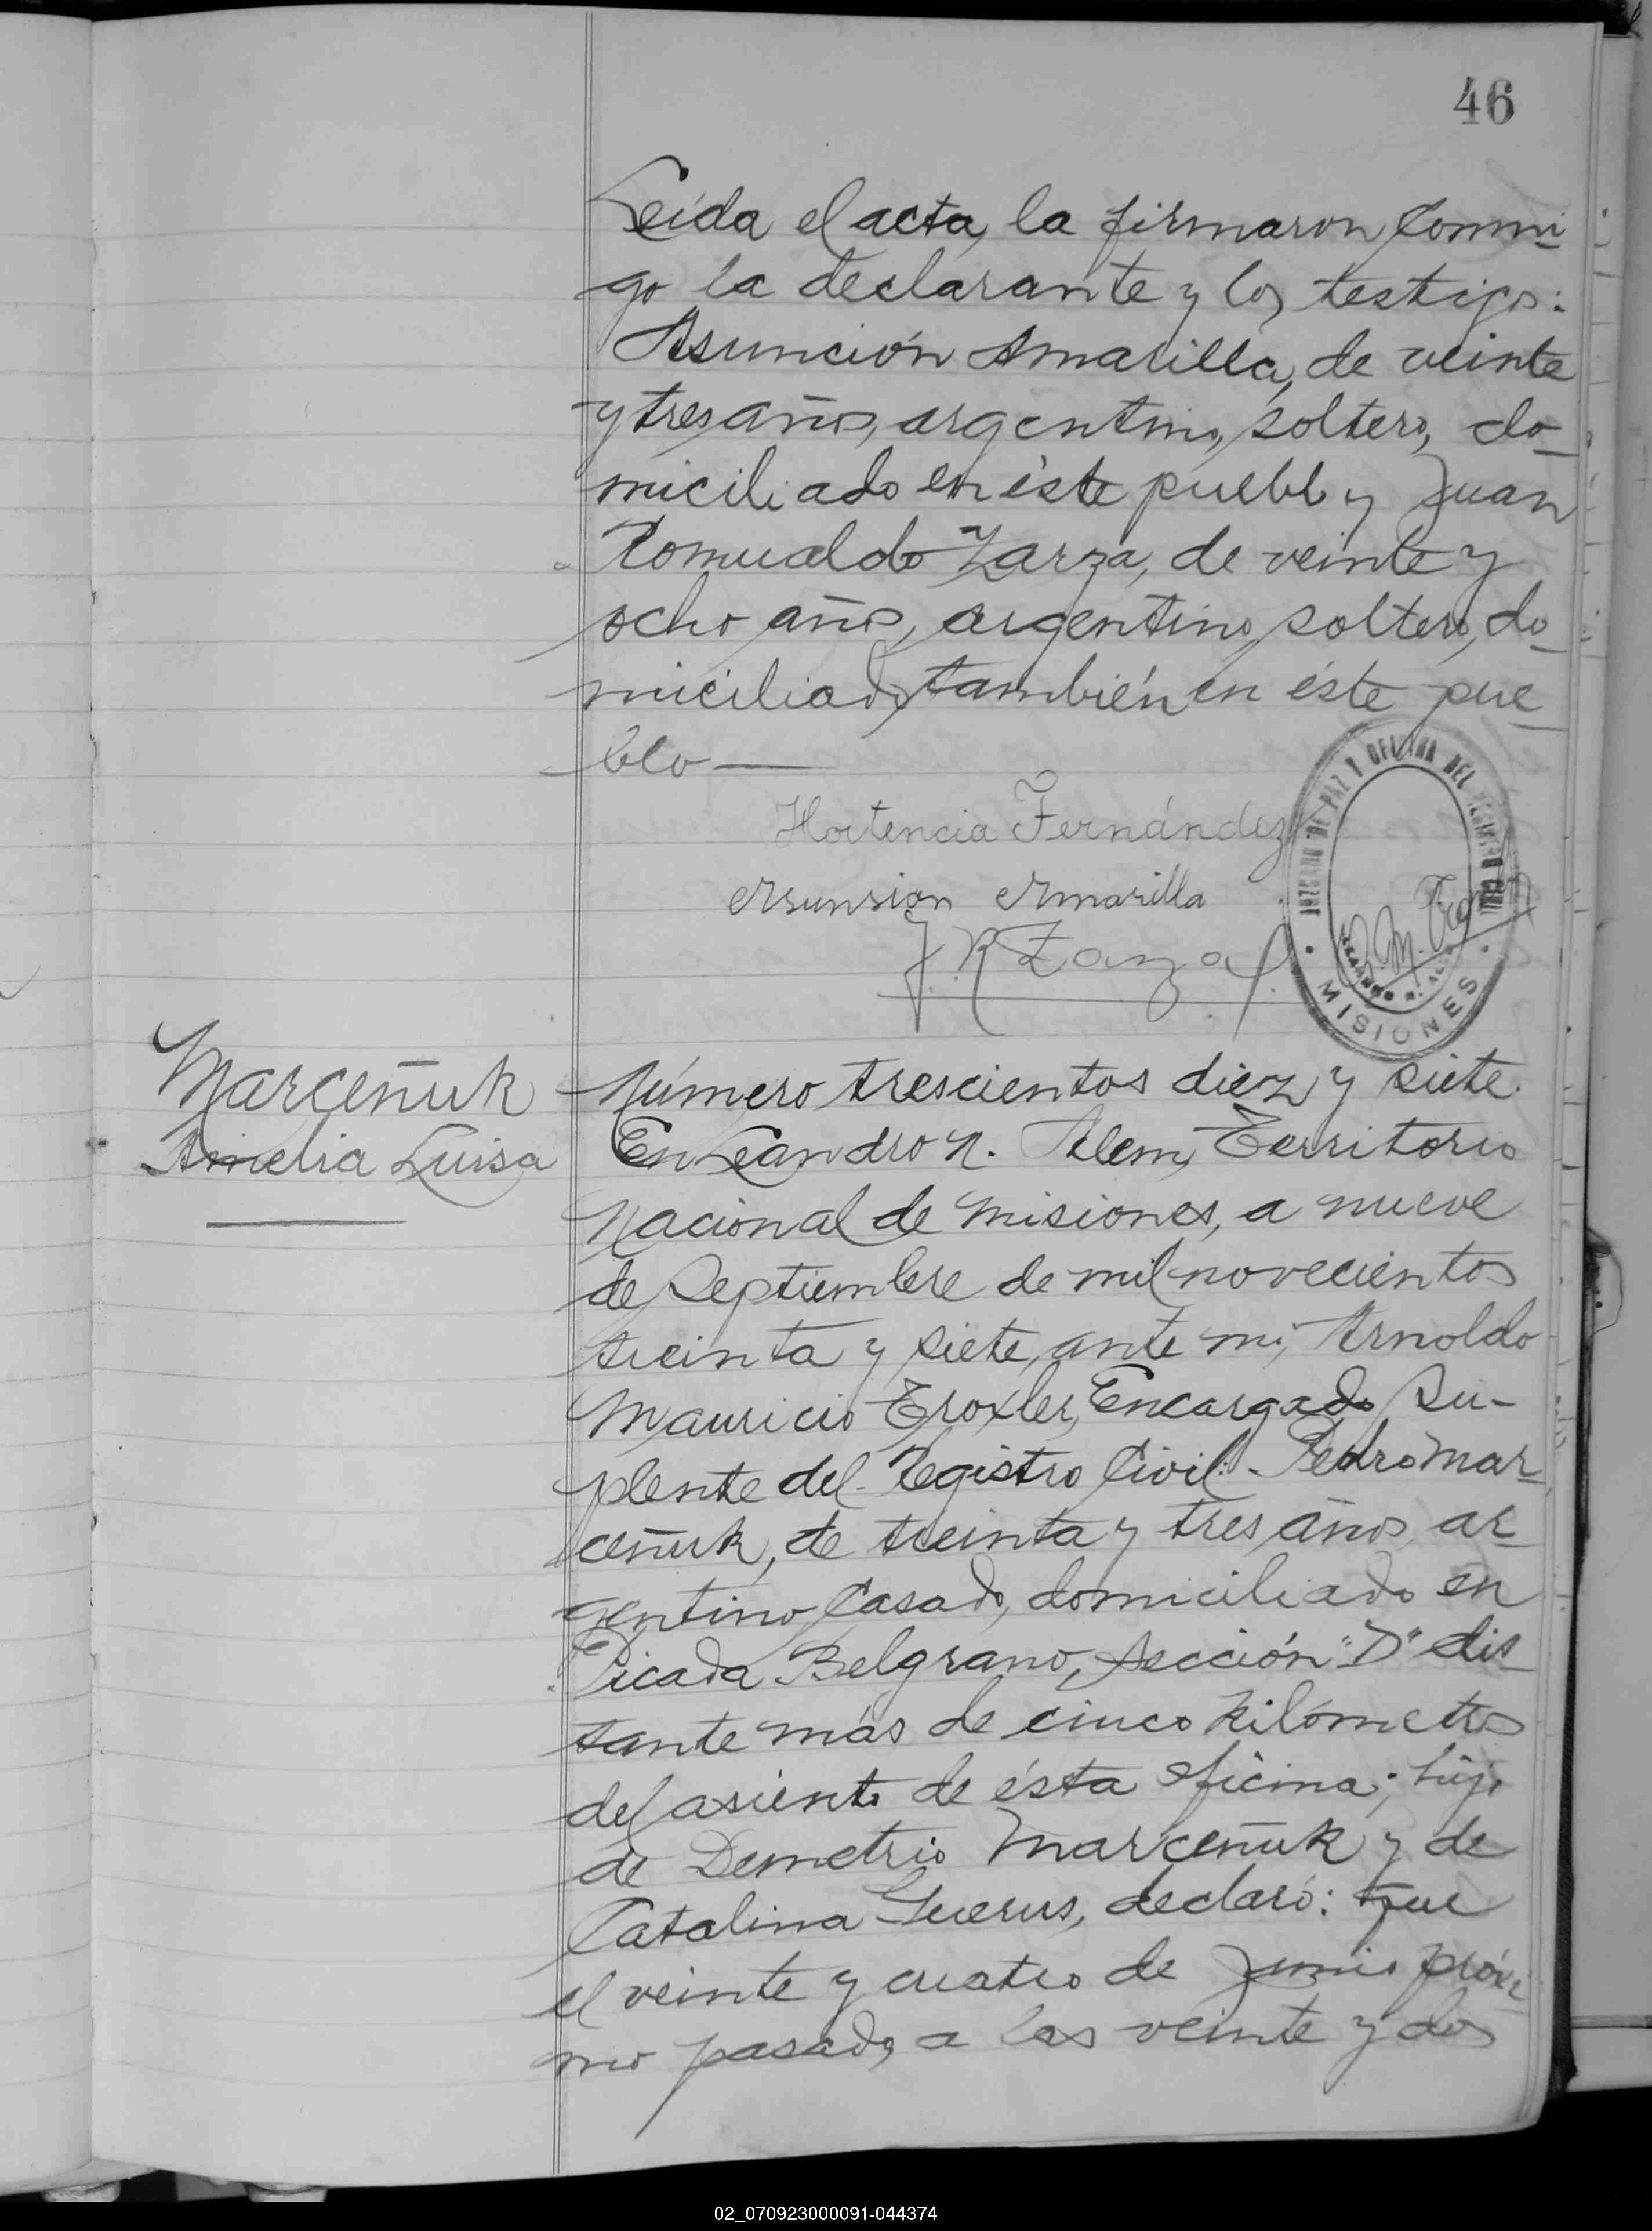 46
Leída el acta, la firmaron conmi-
go la declarante y los testigos:
Asunción Amarilla, de veinte
y tres años, argentino, soltero, do-
miciliado en éste pueblo y Juan
Romualdo Zarza, de veinte y
ocho años, argentino, soltero, do-
miciliado también en éste pue-
blo —
Hortencia Fernández
Asunsion Amarilla
J. R. Zarza
JUZGADO DE PAZ Y OFICINA DEL REGISTRO CIVIL
MISIONES
Marceñuk
Amelia Luisa
Número trescientos diez y siete.
En Leandro N. Alem, Territorio
Nacional de Misiones, a nueve
de Septiembre de mil novecientos
treinta y siete, ante mi, Arnoldo
Mauricio Troxler, Encargado Su-
plente del Registro Civil. Pedro Mar-
ceñuk, de treinta y tres años, ar-
gentino, casado, domiciliado en
Picada Belgrano, sección "D" dis-
tante más de cinco kilómetros
del asiento de ésta oficina; hijo
de Demetrio Marceñuk y de
Catalina declaró: que
el veinte y cuatro de Junio próxi-
mo pasado, a las veinte y dos
02_070923000091-044374